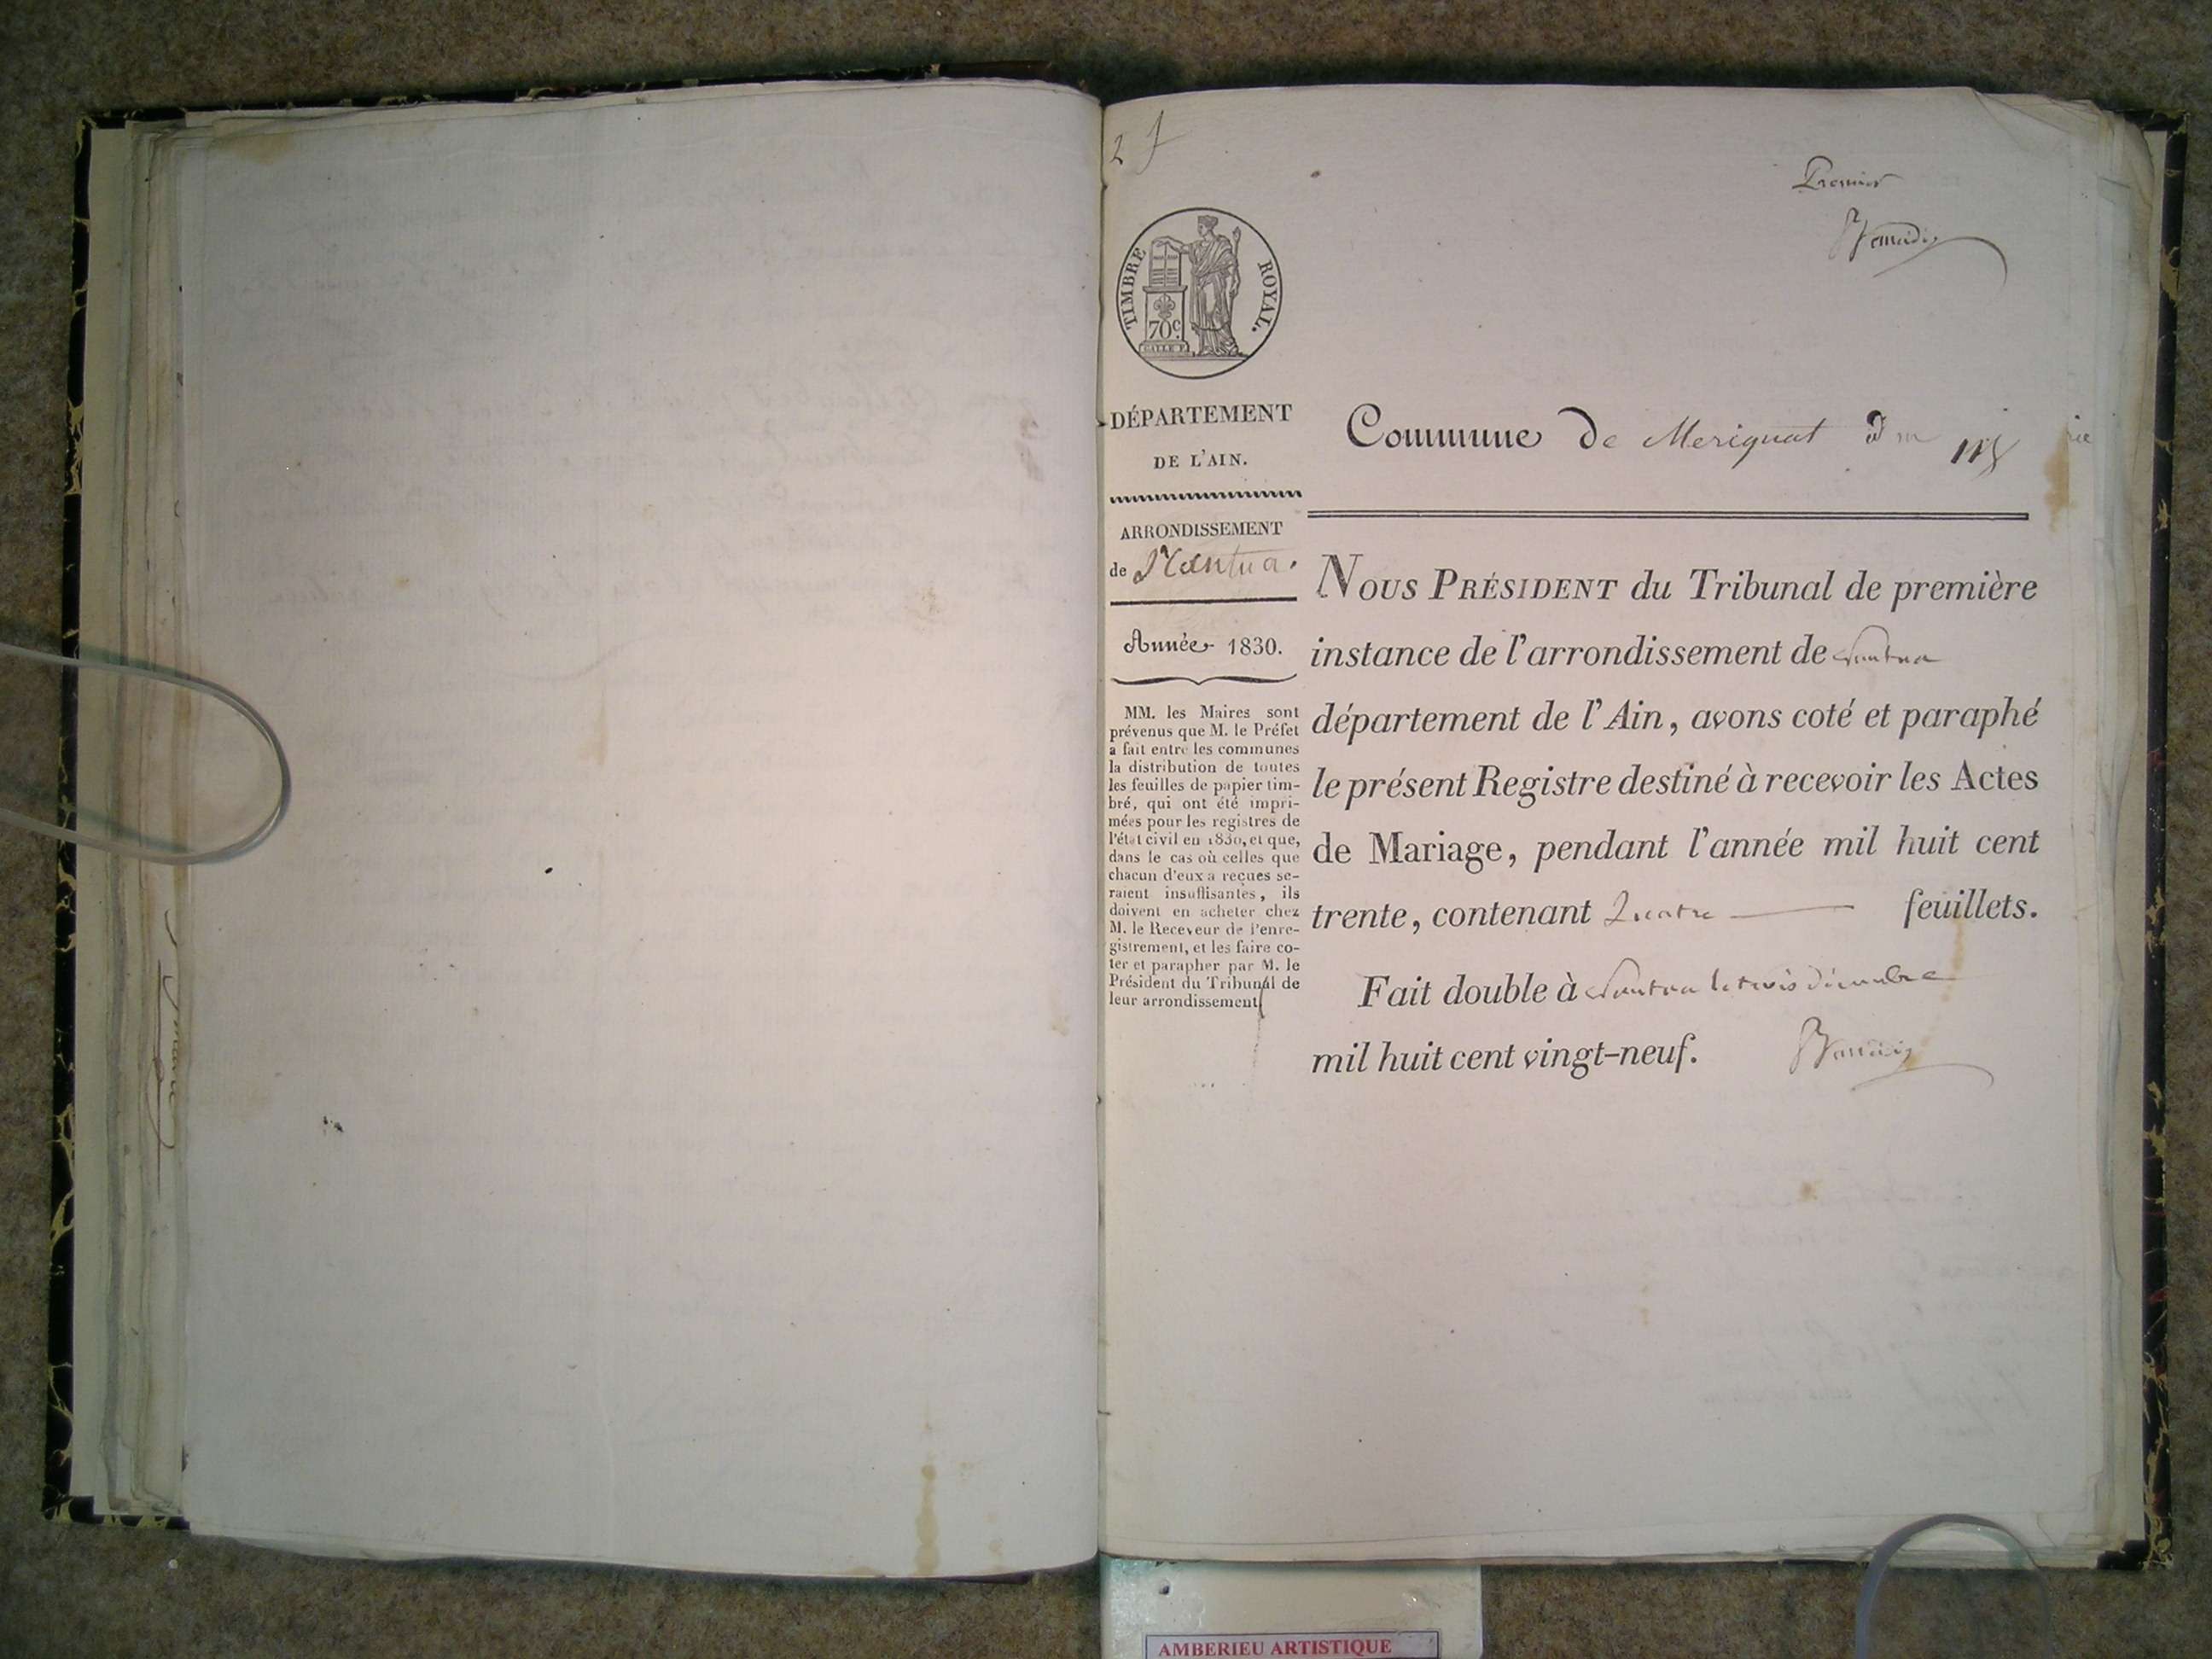 Premier
TIMBRE ROYAL.
70c.
DÉPARTEMENT
DE L'AIN.
Commune de Merignat
ARRONDISSEMENT
de Nantua.
Année 1830.
MM. les Maires sont
prévenus que M. le Préfet
a fait entre les communes
la distribution de toutes
les feuilles de papier tim-
bré, qui ont été impri-
mées pour les registres de
l'état civil en 1830, et que,
dans le cas où celles que
chacun d'eux a reçues se-
raient insuffisantes, ils
doivent en acheter chez
M. le Receveur de l'enre-
gistrement, et les faire co-
ter et parapher par M. le
Président du Tribunal de
leur arrondissement
NOUS PRÉSIDENT du Tribunal de première
instance de l'arrondissement de Nantua
département de l'Ain, avons coté et paraphé
le présent Registre destiné à recevoir les Actes
de Mariage, pendant l'année mil huit cent
trente, contenant Quatre feuillets.
Fait double à Nantua le trois décembre
mil huit cent vingt-neuf.
AMBERIEU ARTISTIQUE